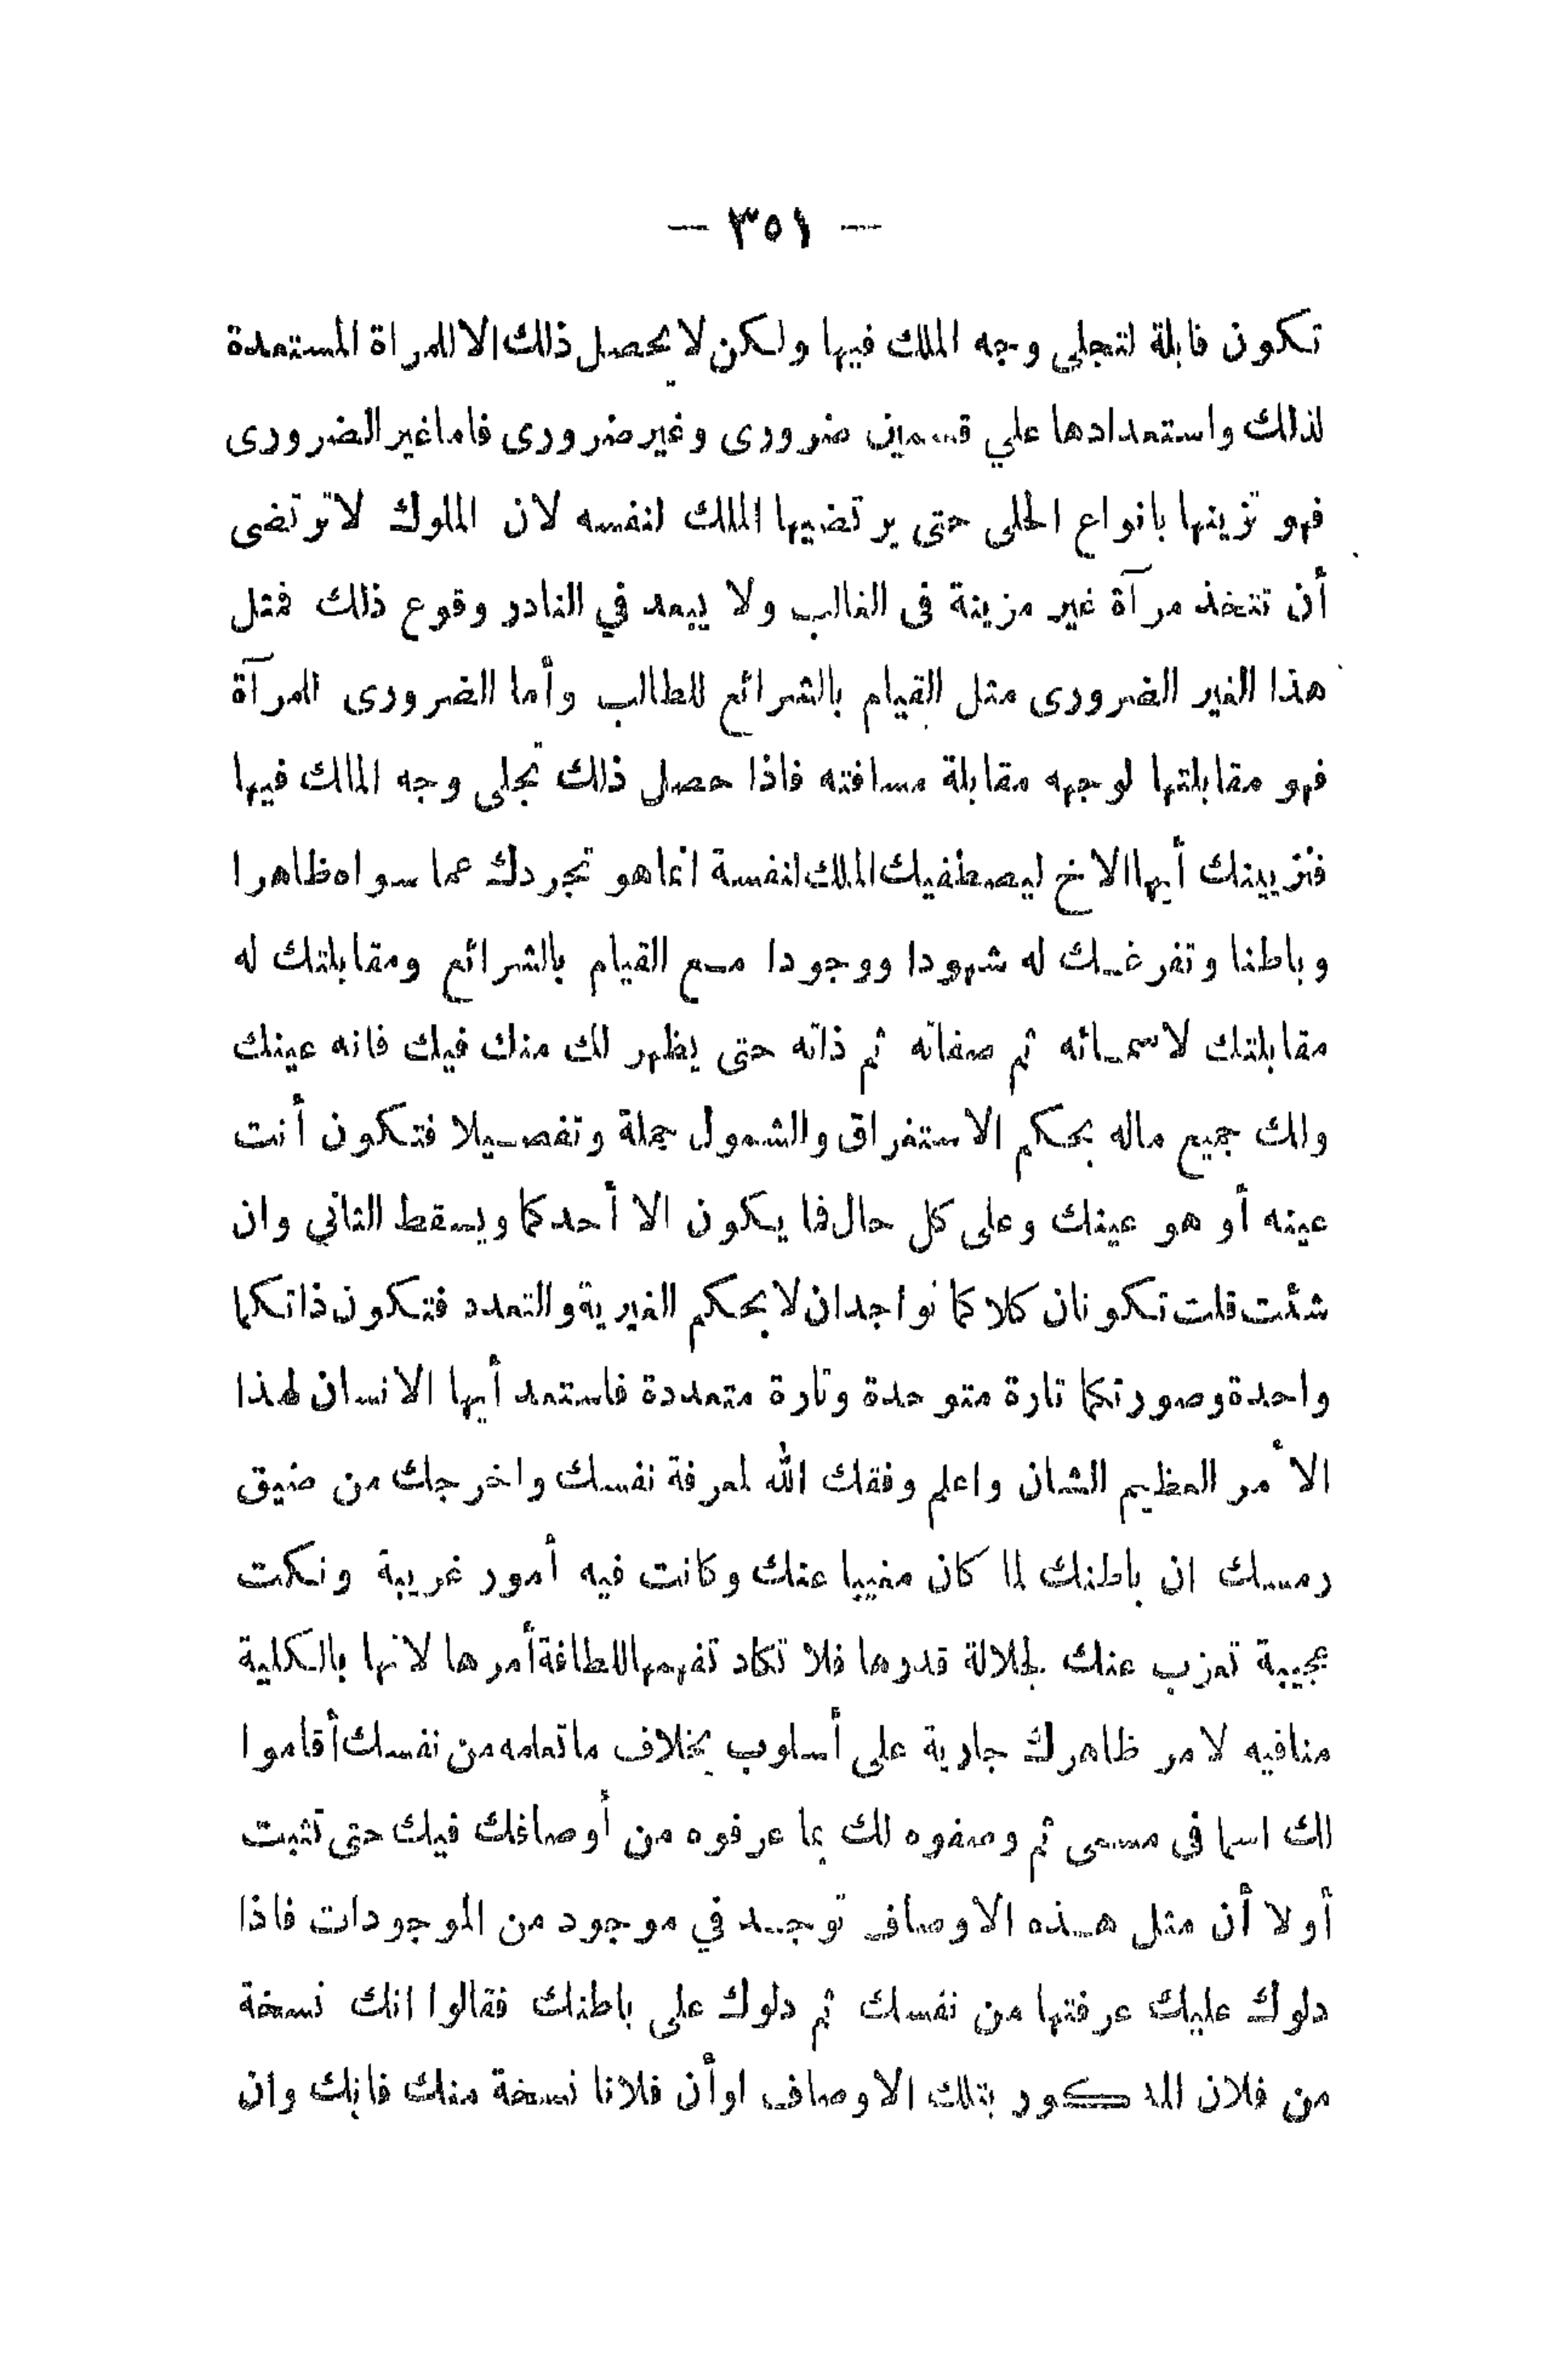 — ٣٥١ —
تكون قابلة لتجلى وجه الملك فيها ولكن لا يحصل ذلك الا للمراة المستعدة
لذلك واستعدادها علي قسمين ضرورى وغير ضرورى فاما غير الضرورى
فهو تزينها بانواع الحلى حتى يرتضيها الملك لنفسه لان الملوك لا ترتضى
أن تتخذ مرآة غير مزينة فى الغالب ولا يبعد في النادر وقوع ذلك فمثل
هذا الغير الضرورى مثل القيام بالشرائع للطالب وأما الضرورى للمرآة
فهو مقابلتها لوجهه مقابلة مسافته فاذا حصل ذلك تجلى وجه المالك فيها
فتزيينك أيها الاخ ليصطفيك الملك لنفسة انما هو تجردك عما سواه ظاهرا
وباطنا وتفرغك له شهودا ووجودا مع القيام بالشرائع ومقابلتك له
مقابلتك لاسمائه ثم صفاته ثم ذاته حتى يظهر لك منك فيك فانه عينك
ولك جميع ماله بحكم الاستغراق والشمول جملة وتفصيلا فتكون أنت
عينه أو هو عينك وعلى كل حال فما يكون الا أحدكما ويسقط الثاني وان
شئت قلت تكونان كلاكما تواجدان لا بحكم الغيرية والتعدد فتكون ذاتكما
واحدة وصورتكما تارة متوحدة وتارة متعددة فاستعد أيها الانسان لهذا
الأمر العظيم الشان واعلم وفقك الله لمعرفة نفسك واخرجك من ضيق
رمسك ان باطنك لما كان مغيبا عنك وكانت فيه أمور غريبة ونكت
عجيبة تعزب عنك لجلالة قدرها فلا تكاد تفهمها للطافة أمرها لانها بالكلية
منافيه لامر ظاهرك جارية على أسلوب بخلاف ما تعلمه من نفسك أقاموا
لك اسما فى مسمى ثم وصفوه لك بما عرفوه من أوصافك فيك حتى تثبت
أولا أن مثل هذه الاوصاف توجد في موجود من الموجودات فاذا
دلوك عليك عرفتها من نفسك ثم دلوك على باطنك فقالوا انك نسخة
من فلان المذكور بتلك الاوصاف اوأن فلانا نسخة منك فانك وان